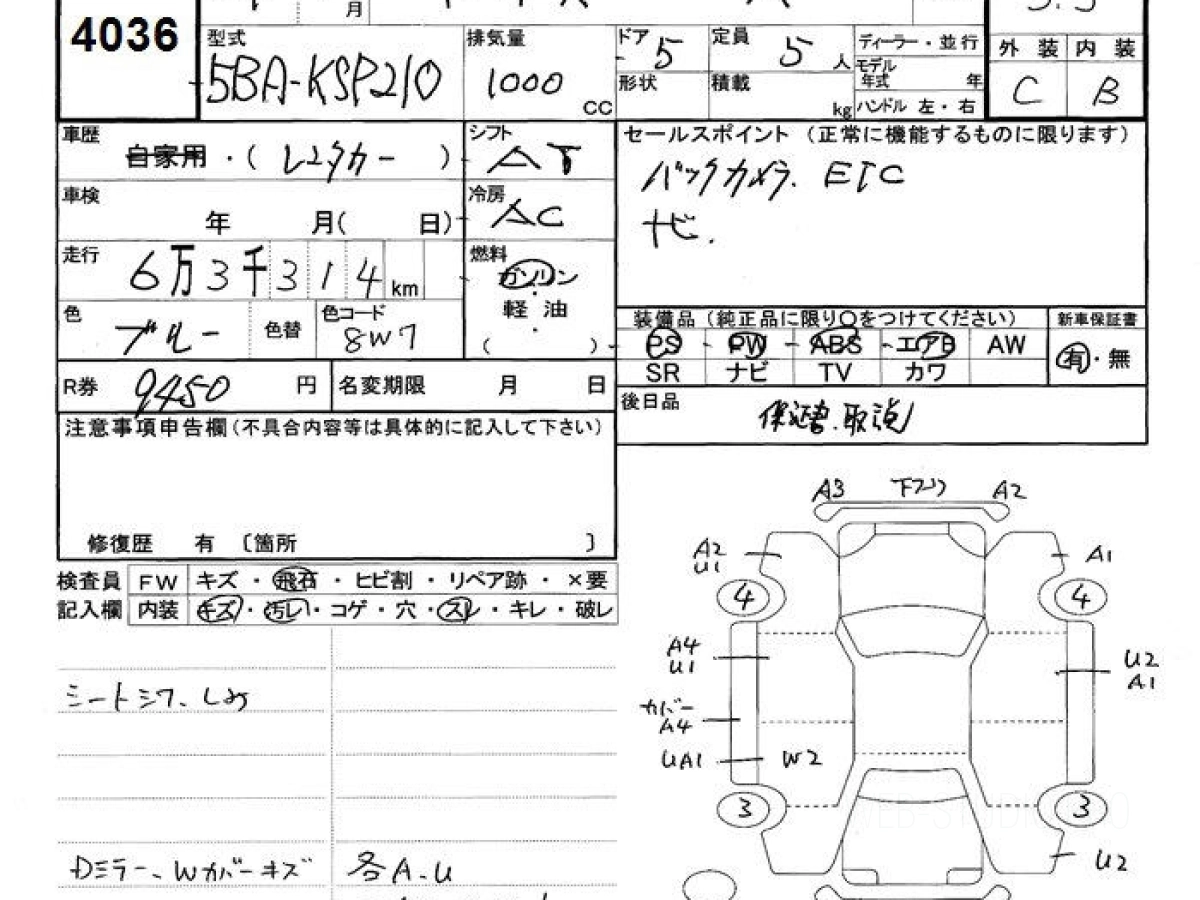 4036
月
型式
5BA-KSP210
排気量
1000
CC
ドア 5
定員 5 人
形状
積載
kg
ディーラー・並行
モデル年式 年
ハンドル 左・右
外装 内装
C B
車歴
自家用・( レンタカー )
シフト
AT
セールスポイント（正常に機能するものに限ります）
バックカメラ. ETC
ナビ.
車検
年 月( 日)
冷房
AC
走行
6万3千314km
燃料
ガソリン
・
軽油
・
( )
色
ブルー
色替
色コード
8W7
装備品（純正品に限り○をつけてください）
新車保証書
PS PW ABS エアB AW
有・無
SR ナビ TV カワ
R券 9450 円
名変期限 月 日
後日品
保証書.取説
注意事項申告欄（不具合内容等は具体的に記入して下さい）
修復歴 有 〔箇所 〕
検査員 FW キズ・飛石・ヒビ割・リペア跡・×要
記入欄 内装 キズ・汚レ・コゲ・穴・スレ・キレ・破レ
A3 下フリ A2
A2
U1
A1
4 4
A4
U1
U2
A1
カバー
A4
UA1 W2
3 3
U2
シートシワ、しみ
Dミラー、Wカバーキズ
各A.U